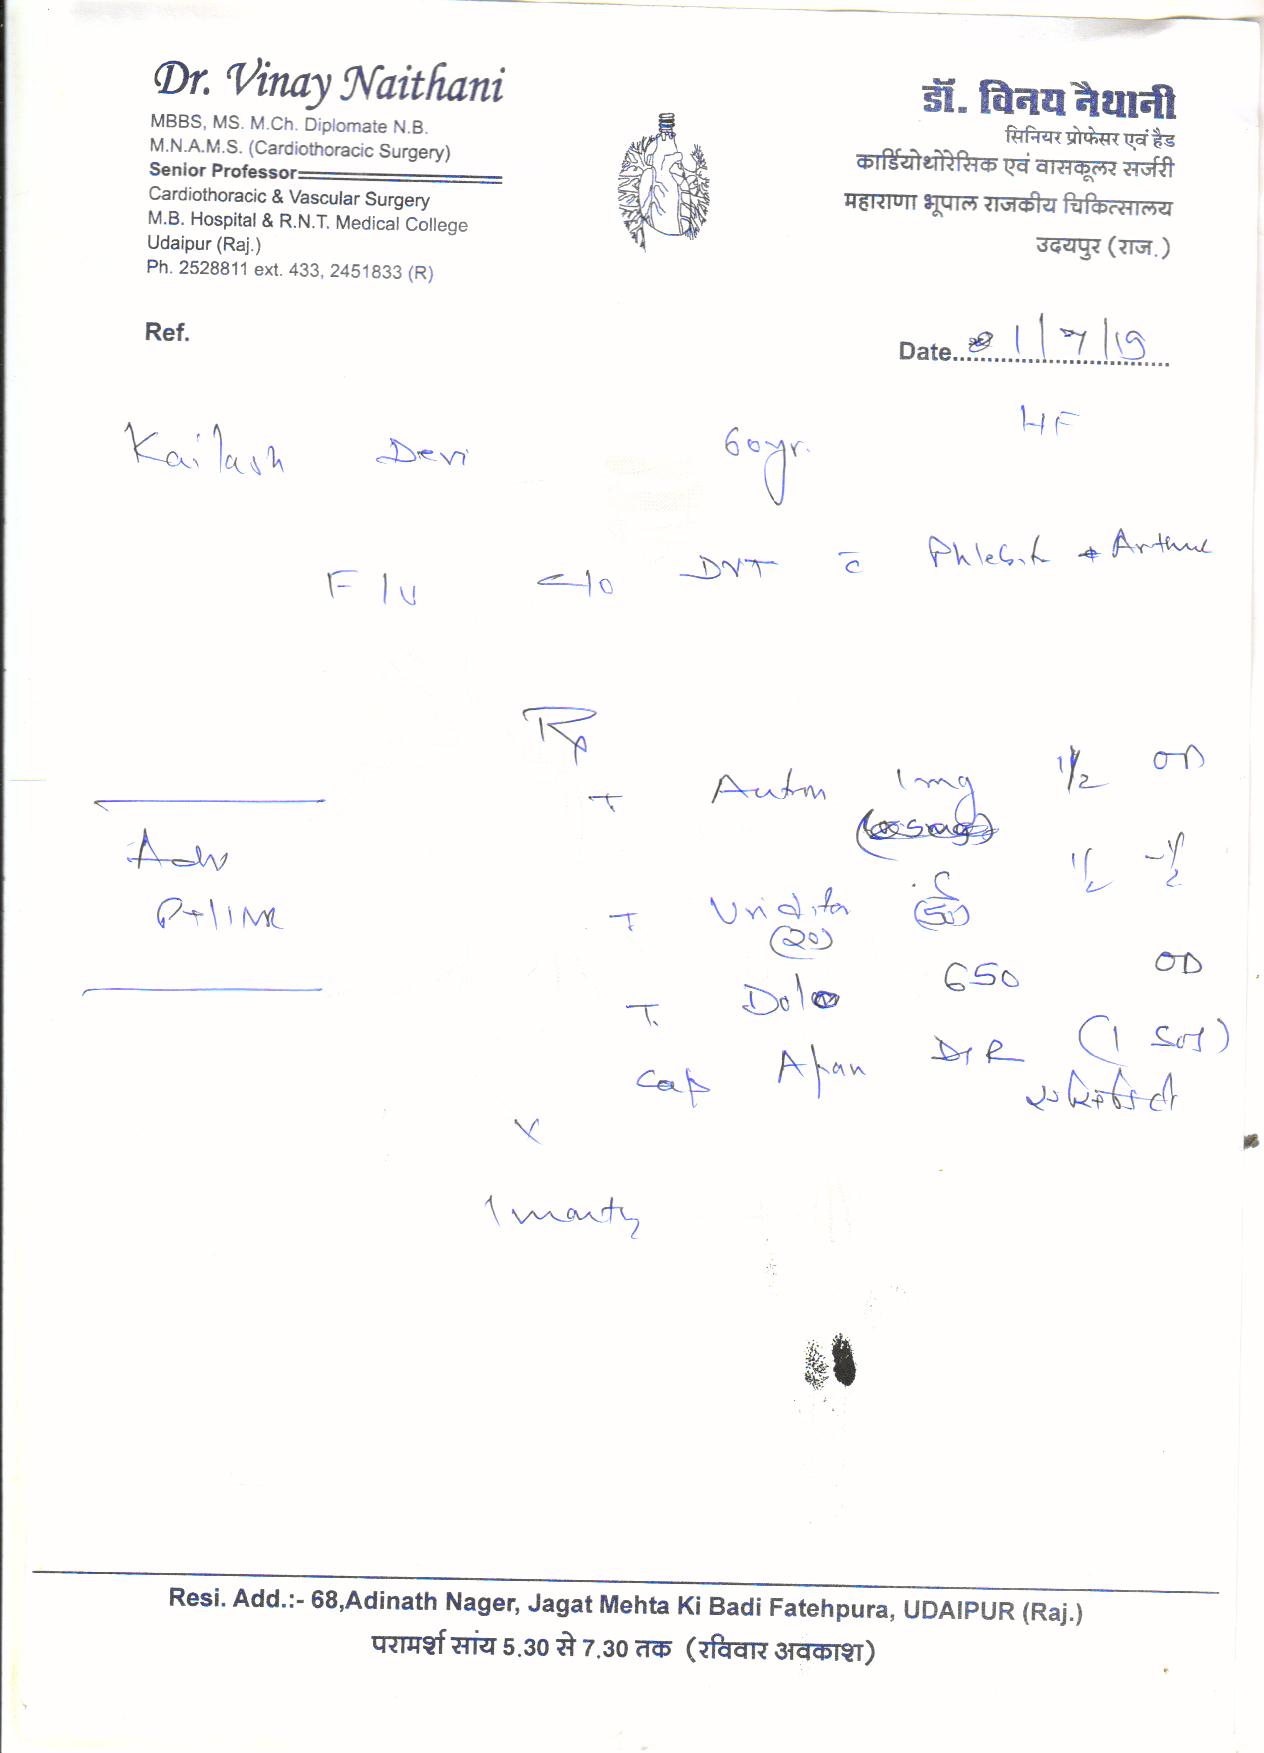 Dr. Vinay Naithani
MBBS, MS. M.Ch. Diplomate N.B.
M.N.A.M.S. (Cardiothoracic Surgery)
Senior Professor
Cardiothoracic & Vascular Surgery
M.B. Hospital & R.N.T. Medical College
Udaipur (Raj.)
Ph. 2528811 ext. 433, 2451833 (R)
डॉ. विनय नैथानी
सिनियर प्रोफेसर एवं हैड
कार्डियोथोरेसिक एवं वासकूलर सर्जरी
महाराणा भूपाल राजकीय चिकित्सालय
उदयपुर (राज.)
Ref.
Date.. 1/7/19
HF
Kailash Devi 60yr.
F/U c/o DVT c̄
Rx
T 1mg 1/2 OD
Adv
Pt/INR
T (20) (50) 1/2 - 1/2
T. Dolo 650 OD
Cap DSR (1 SOS)
x
1 month
Resi. Add.:- 68,Adinath Nager, Jagat Mehta Ki Badi Fatehpura, UDAIPUR (Raj.)
परामर्श सांय 5.30 से 7.30 तक (रविवार अवकाश)